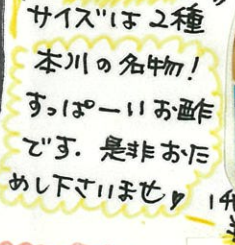 サイズは2種
本川の名物！
すっぱーいお酢
です．是非おた
めし下さいませ♥
1升